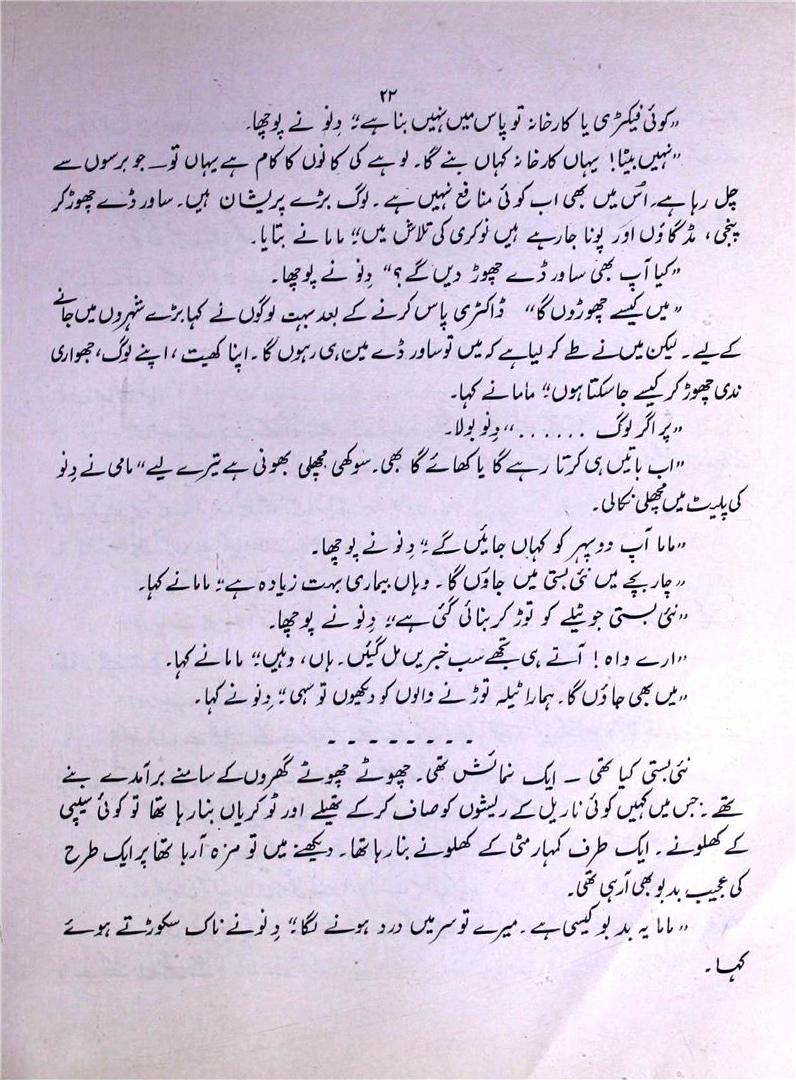 ۲۳
”کوئی فیکٹری یا کارخانہ تو پاس میں نہیں بنا ہے“ دِنو نے پوچھا۔
”نہیں بیٹا! یہاں کارخانہ کہاں بنے گا۔ لوہے کی کانوں کا کام ہے یہاں تو۔ جو برسوں سے
چل رہا ہے۔ اس میں بھی اب کوئی منافع نہیں ہے۔ لوگ بڑے پریشان ہیں۔ ساورڈے چھوڑ کر
پنجی، مڈگاؤں اور پونا جارہے ہیں نوکری کی تلاش میں“ ماما نے بتایا۔
”کیا آپ بھی ساورڈے چھوڑ دیں گے؟“ دِنو نے پوچھا۔
”میں کیسے چھوڑوں گا“ ڈاکٹری پاس کرنے کے بعد بہت لوگوں نے کہا بڑے شہروں میں جانے
کے لیے۔ لیکن میں نے طے کر لیا ہے کہ میں تو ساورڈے میں ہی رہوں گا۔ اپنا کھیت، اپنے لوگ، جھواری
ندی چھوڑ کر کیسے جاسکتا ہوں“ ماما نے کہا۔
”پر اگر لوگ ......“ دِنو بولا۔
”اب باتیں ہی کرتا رہے گا یا کھائے گا بھی۔ سوکھی مچھلی بھونی ہے تیرے لیے“ مامی نے دِنو
کی پلیٹ میں مچھلی نکالی۔
”ماما آپ دوپہر کو کہاں جائیں گے“ دِنو نے پوچھا۔
”چار بجے میں نئی بستی میں جاؤں گا۔ وہاں بیماری بہت زیادہ ہے“ ماما نے کہا۔
”نئی بستی جو ٹیلے کو توڑ کر بنائی گئی ہے“ دِنو نے پوچھا۔
”ارے واہ! آتے ہی تجھے سب خبریں مل گئیں۔ ہاں، وہیں“ ماما نے کہا۔
”میں بھی جاؤں گا۔ ہمارا ٹیلہ توڑنے والوں کو دیکھوں تو سہی“ دِنو نے کہا۔
- - - - - - - -
نئی بستی کیا تھی ۔ ایک نمائش تھی۔ چھوٹے چھوٹے گھروں کے سامنے برآمدے بنے
تھے۔ جس میں کہیں کوئی ناریل کے ریشوں کو صاف کرکے تھیلے اور ٹوکریاں بنارہا تھا تو کوئی سیپی
کے کھلونے۔ ایک طرف کمہار مٹی کے کھلونے بنارہا تھا۔ دیکھنے میں تو مزہ آرہا تھا پر ایک طرح
کی عجیب بدبو بھی آرہی تھی۔
”ماما یہ بدبو کیسی ہے۔ میرے تو سر میں درد ہونے لگا“ دِنو نے ناک سکوڑتے ہوئے
کہا۔